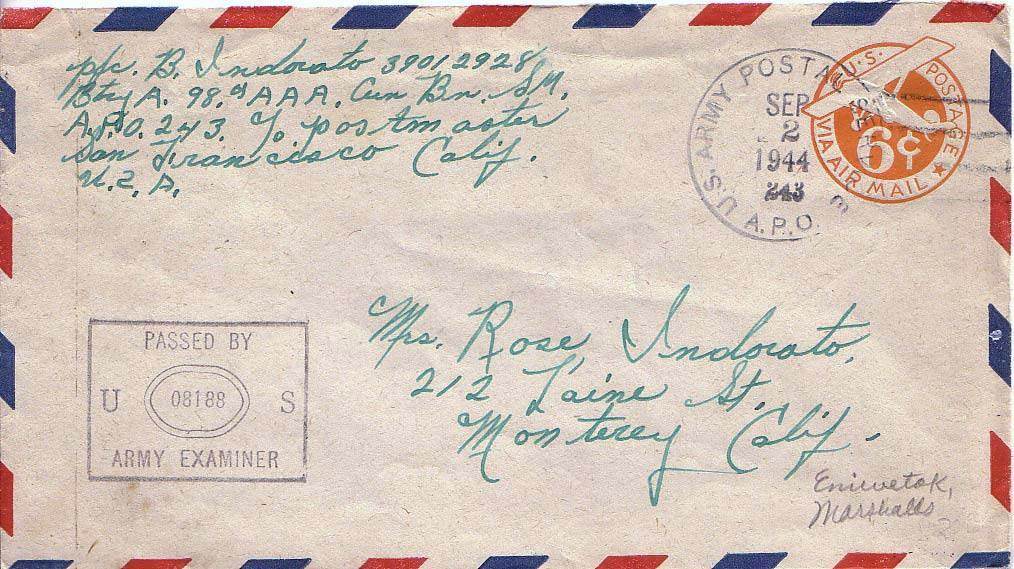 Pfc. B. Indorato 39012928
Btry A. 98.d AAA. Gun Bn. S.M.
A.P.O. 243. c/o postmaster
San Francisco Calif.
U.S.A.
U.S. ARMY POSTAL
SEP
2
1944
243
A.P.O.
U.S. POSTAGE
6¢
VIA AIR MAIL
PASSED BY
U 08188 S
ARMY EXAMINER
Mrs. Rose Indorato.
212 Laine St.
Monterey Calif.
Eniwetok,
Marshalls